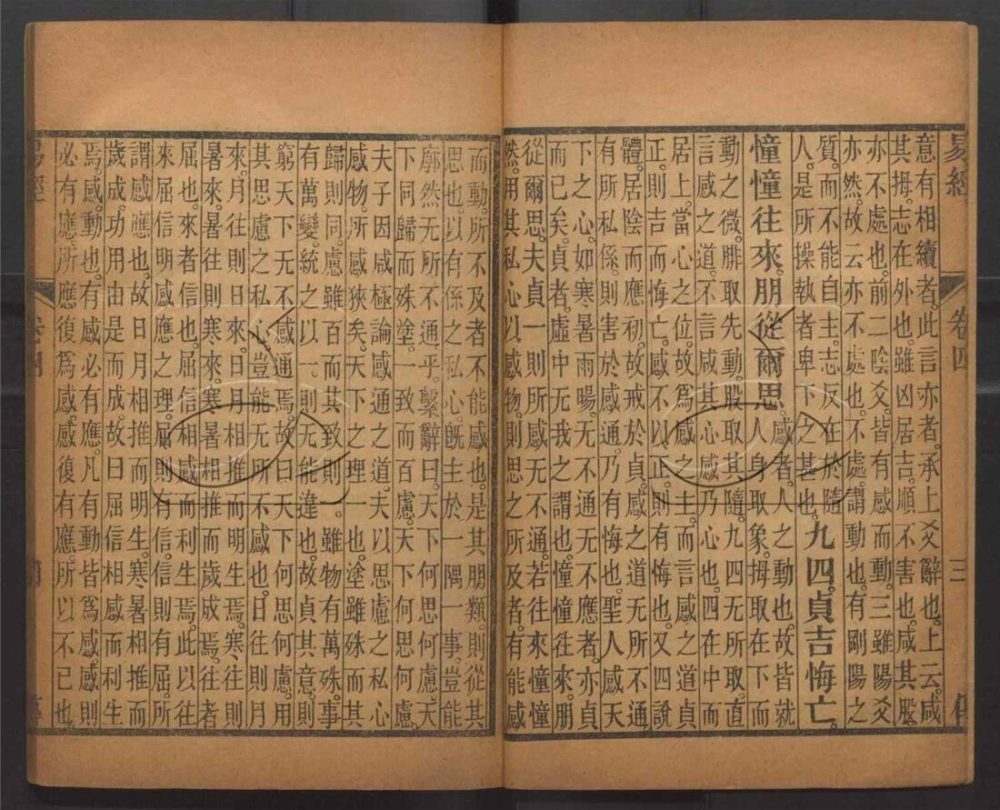 易經　卷四　三
意有相續者。此言亦者。承上爻辭也。上云。咸
其拇。志在外也。雖凶居吉。順不害也。咸其股。
亦不處也。前二陰爻。皆有感而動。三雖陽爻
亦然。故云亦不處也。不處。謂動也。有剛陽之
質。而不能自主。志反在於隨
人。是所操執者卑下之甚也。
九四。貞吉悔亡。
憧憧往來。朋從爾思。
感者。人之動也。故皆就
人身取象。拇取在下而
動之微。腓取先動。股取其隨。九四无所取。直
言感之道。不言咸其心。感乃心也。四在中而
居上。當心之位。故爲感之主。而言感之道。貞
正。則吉而悔亡。感不以正。則有悔也。又四說
體。居陰而應初。故戒於貞。感之道无所不通。
有所私係。則害於感通。乃有悔也。聖人感天
下之心。如寒暑雨暘。无不通无不應者。亦貞
而已矣。貞者。虛中无我之謂也。憧憧往來。朋
從爾思。夫貞一則所感无不通。若往來憧憧
然。用其私心以感物。則思之所及者。有能感
而動。所不及者不能感也。是其朋類則從其
思也。以有係之私心。旣主於一隅一事。豈能
廓然无所不通乎。繫辭曰。天下何思何慮。天
下同歸而殊塗。一致而百慮。天下何思何慮。
夫子因咸極論感通之道。夫以思慮之私心
感物。所感狹矣。天下之理一也。塗雖殊而其
歸則同。慮雖百而其致則一。雖物有萬殊。事
有萬變。統之以一。則无能違也。故貞其意。則
窮天下无不感通焉。故曰天下何思何慮。用
其思慮之私心。豈能无所不感也。日往則月
來。月往則日來。日月相推而明生焉。寒往則
暑來。暑往則寒來。寒暑相推而歲成焉。往者
屈也。來者信也。屈信相感而利生焉。此以往
來屈信明感應之理。屈則有信。信則有屈。所
謂感應也。故日月相推而明生。寒暑相推而
歲成。功用由是而成。故曰屈信相感而利生
焉。感。動也。有感必有應。凡有動皆爲感。感則
必有應。所應復爲感。感復有應。所以不已也。